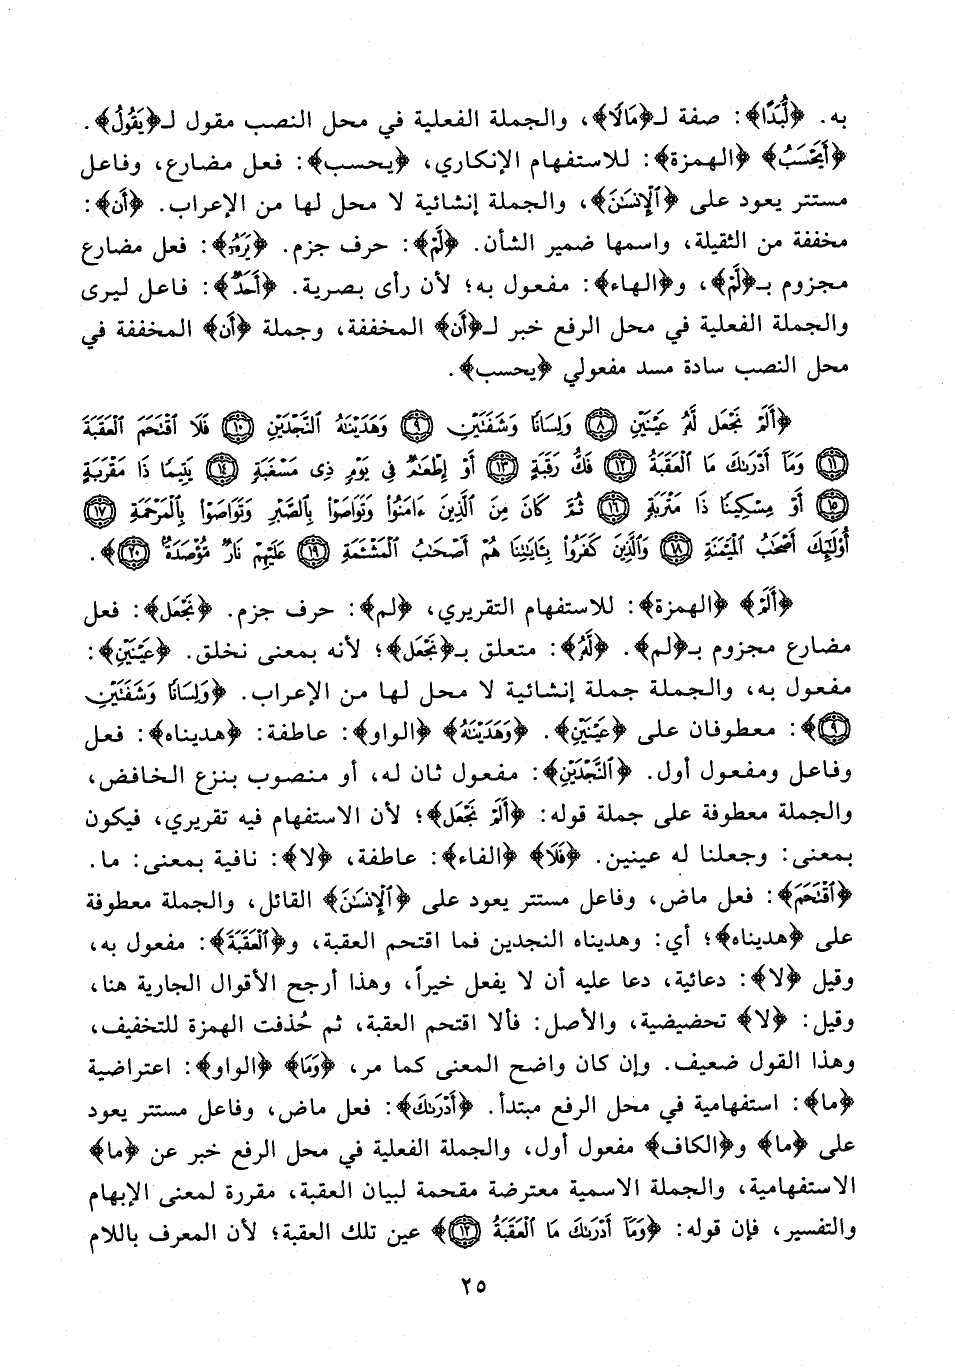 به. ﴿لُّبَدًا﴾: صفة لـ﴿مَالًا﴾، والجملة الفعلية في محل النصب مقول لـ﴿يَقُولُ﴾.
﴿أَيَحْسَبُ﴾ ﴿الهمزة﴾: للاستفهام الإنكاري، ﴿يحسب﴾: فعل مضارع، وفاعل
مستتر يعود على ﴿ٱلْإِنسَٰنَ﴾، والجملة إنشائية لا محل لها من الإعراب. ﴿أَن﴾:
مخففة من الثقيلة، واسمها ضمير الشأن. ﴿لَّمْ﴾: حرف جزم. ﴿يَرَهُۥٓ﴾: فعل مضارع
مجزوم بـ﴿لَّمْ﴾، و﴿الهاء﴾: مفعول به؛ لأن رأى بصرية. ﴿أَحَدٌ﴾: فاعل ليرى
والجملة الفعلية في محل الرفع خبر لـ﴿أَن﴾ المخففة، وجملة ﴿أَن﴾ المخففة في
محل النصب سادة مسد مفعولي ﴿يحسب﴾.
﴿أَلَمْ نَجْعَل لَّهُۥ عَيْنَيْنِ ٨ وَلِسَانًا وَشَفَتَيْنِ ٩ وَهَدَيْنَٰهُ ٱلنَّجْدَيْنِ ١٠ فَلَا ٱقْتَحَمَ ٱلْعَقَبَةَ
١١ وَمَآ أَدْرَىٰكَ مَا ٱلْعَقَبَةُ ١٢ فَكُّ رَقَبَةٍ ١٣ أَوْ إِطْعَٰمٌ فِى يَوْمٍ ذِى مَسْغَبَةٍ ١٤ يَتِيمًا ذَا مَقْرَبَةٍ
١٥ أَوْ مِسْكِينًا ذَا مَتْرَبَةٍ ١٦ ثُمَّ كَانَ مِنَ ٱلَّذِينَ ءَامَنُوا۟ وَتَوَاصَوْا۟ بِٱلصَّبْرِ وَتَوَاصَوْا۟ بِٱلْمَرْحَمَةِ ١٧
أُو۟لَٰٓئِكَ أَصْحَٰبُ ٱلْمَيْمَنَةِ ١٨ وَٱلَّذِينَ كَفَرُوا۟ بِـَٔايَٰتِنَا هُمْ أَصْحَٰبُ ٱلْمَشْـَٔمَةِ ١٩ عَلَيْهِمْ نَارٌ مُّؤْصَدَةٌۢ ٢٠﴾.
﴿أَلَمْ﴾ ﴿الهمزة﴾: للاستفهام التقريري، ﴿لم﴾: حرف جزم. ﴿نَجْعَل﴾: فعل
مضارع مجزوم بـ﴿لم﴾. ﴿لَّهُۥ﴾: متعلق بـ﴿نَجْعَل﴾؛ لأنه بمعنى نخلق. ﴿عَيْنَيْنِ﴾:
مفعول به، والجملة جملة إنشائية لا محل لها من الإعراب. ﴿وَلِسَانًا وَشَفَتَيْنِ
٩﴾: معطوفان على ﴿عَيْنَيْنِ﴾. ﴿وَهَدَيْنَٰهُ﴾ ﴿الواو﴾: عاطفة: ﴿هديناه﴾: فعل
وفاعل ومفعول أول. ﴿ٱلنَّجْدَيْنِ﴾: مفعول ثان له، أو منصوب بنزع الخافض،
والجملة معطوفة على جملة قوله: ﴿أَلَمْ نَجْعَل﴾؛ لأن الاستفهام فيه تقريري، فيكون
بمعنى: وجعلنا له عينين. ﴿فَلَا﴾ ﴿الفاء﴾: عاطفة، ﴿لا﴾: نافية بمعنى: ما.
﴿ٱقْتَحَمَ﴾: فعل ماض، وفاعل مستتر يعود على ﴿ٱلْإِنسَٰنَ﴾ القائل، والجملة معطوفة
على ﴿هديناه﴾؛ أي: وهديناه النجدين فما اقتحم العقبة، و﴿ٱلْعَقَبَةَ﴾: مفعول به،
وقيل ﴿لا﴾: دعائية، دعا عليه أن لا يفعل خيراً، وهذا أرجح الأقوال الجارية هنا،
وقيل: ﴿لا﴾ تحضيضية، والأصل: فألا اقتحم العقبة، ثم حُذفت الهمزة للتخفيف،
وهذا القول ضعيف. وإن كان واضح المعنى كما مر، ﴿وَمَآ﴾ ﴿الواو﴾: اعتراضية
﴿ما﴾: استفهامية في محل الرفع مبتدأ. ﴿أَدْرَىٰكَ﴾: فعل ماض، وفاعل مستتر يعود
على ﴿ما﴾ و﴿الكاف﴾ مفعول أول، والجملة الفعلية في محل الرفع خبر عن ﴿ما﴾
الاستفهامية، والجملة الاسمية معترضة مقحمة لبيان العقبة، مقررة لمعنى الإبهام
والتفسير، فإن قوله: ﴿وَمَآ أَدْرَىٰكَ مَا ٱلْعَقَبَةُ ١٢﴾ عين تلك العقبة؛ لأن المعرف باللام
٢٥